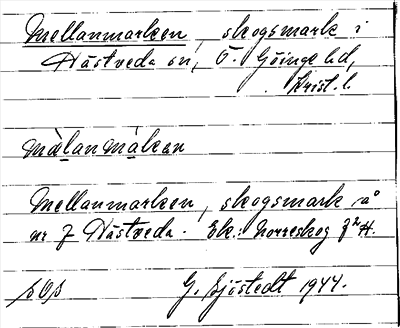 Mellanmarken, skogsmark i
Hästveda sn, Ö. Göinge hd,
Krist. l.
mälanmàkan
Mellanmarken, skogsmark å
nr 7 Hästveda. Ek.: Norreskog
G. Sjöstedt 1944.